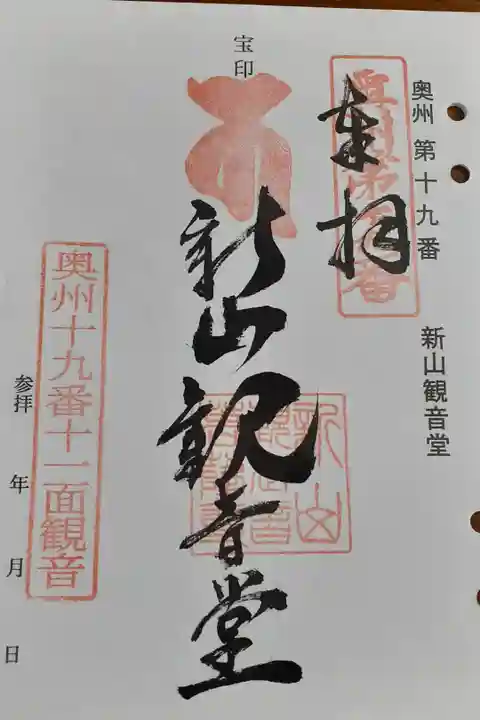 奥州 第十九番 新山観音堂
奉拝
宝印
新山観音堂
奥州十九番十一面観音
参拝 年 月 日